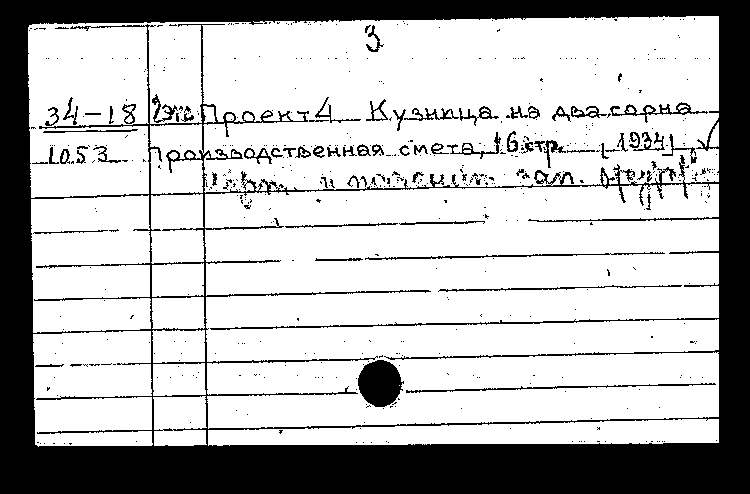 3
34-18 2экз Проект 4 Кузница на два горна
1053 Производственная смета, 16 стр. [1934] ✓
Черт. и пояснит. зап.